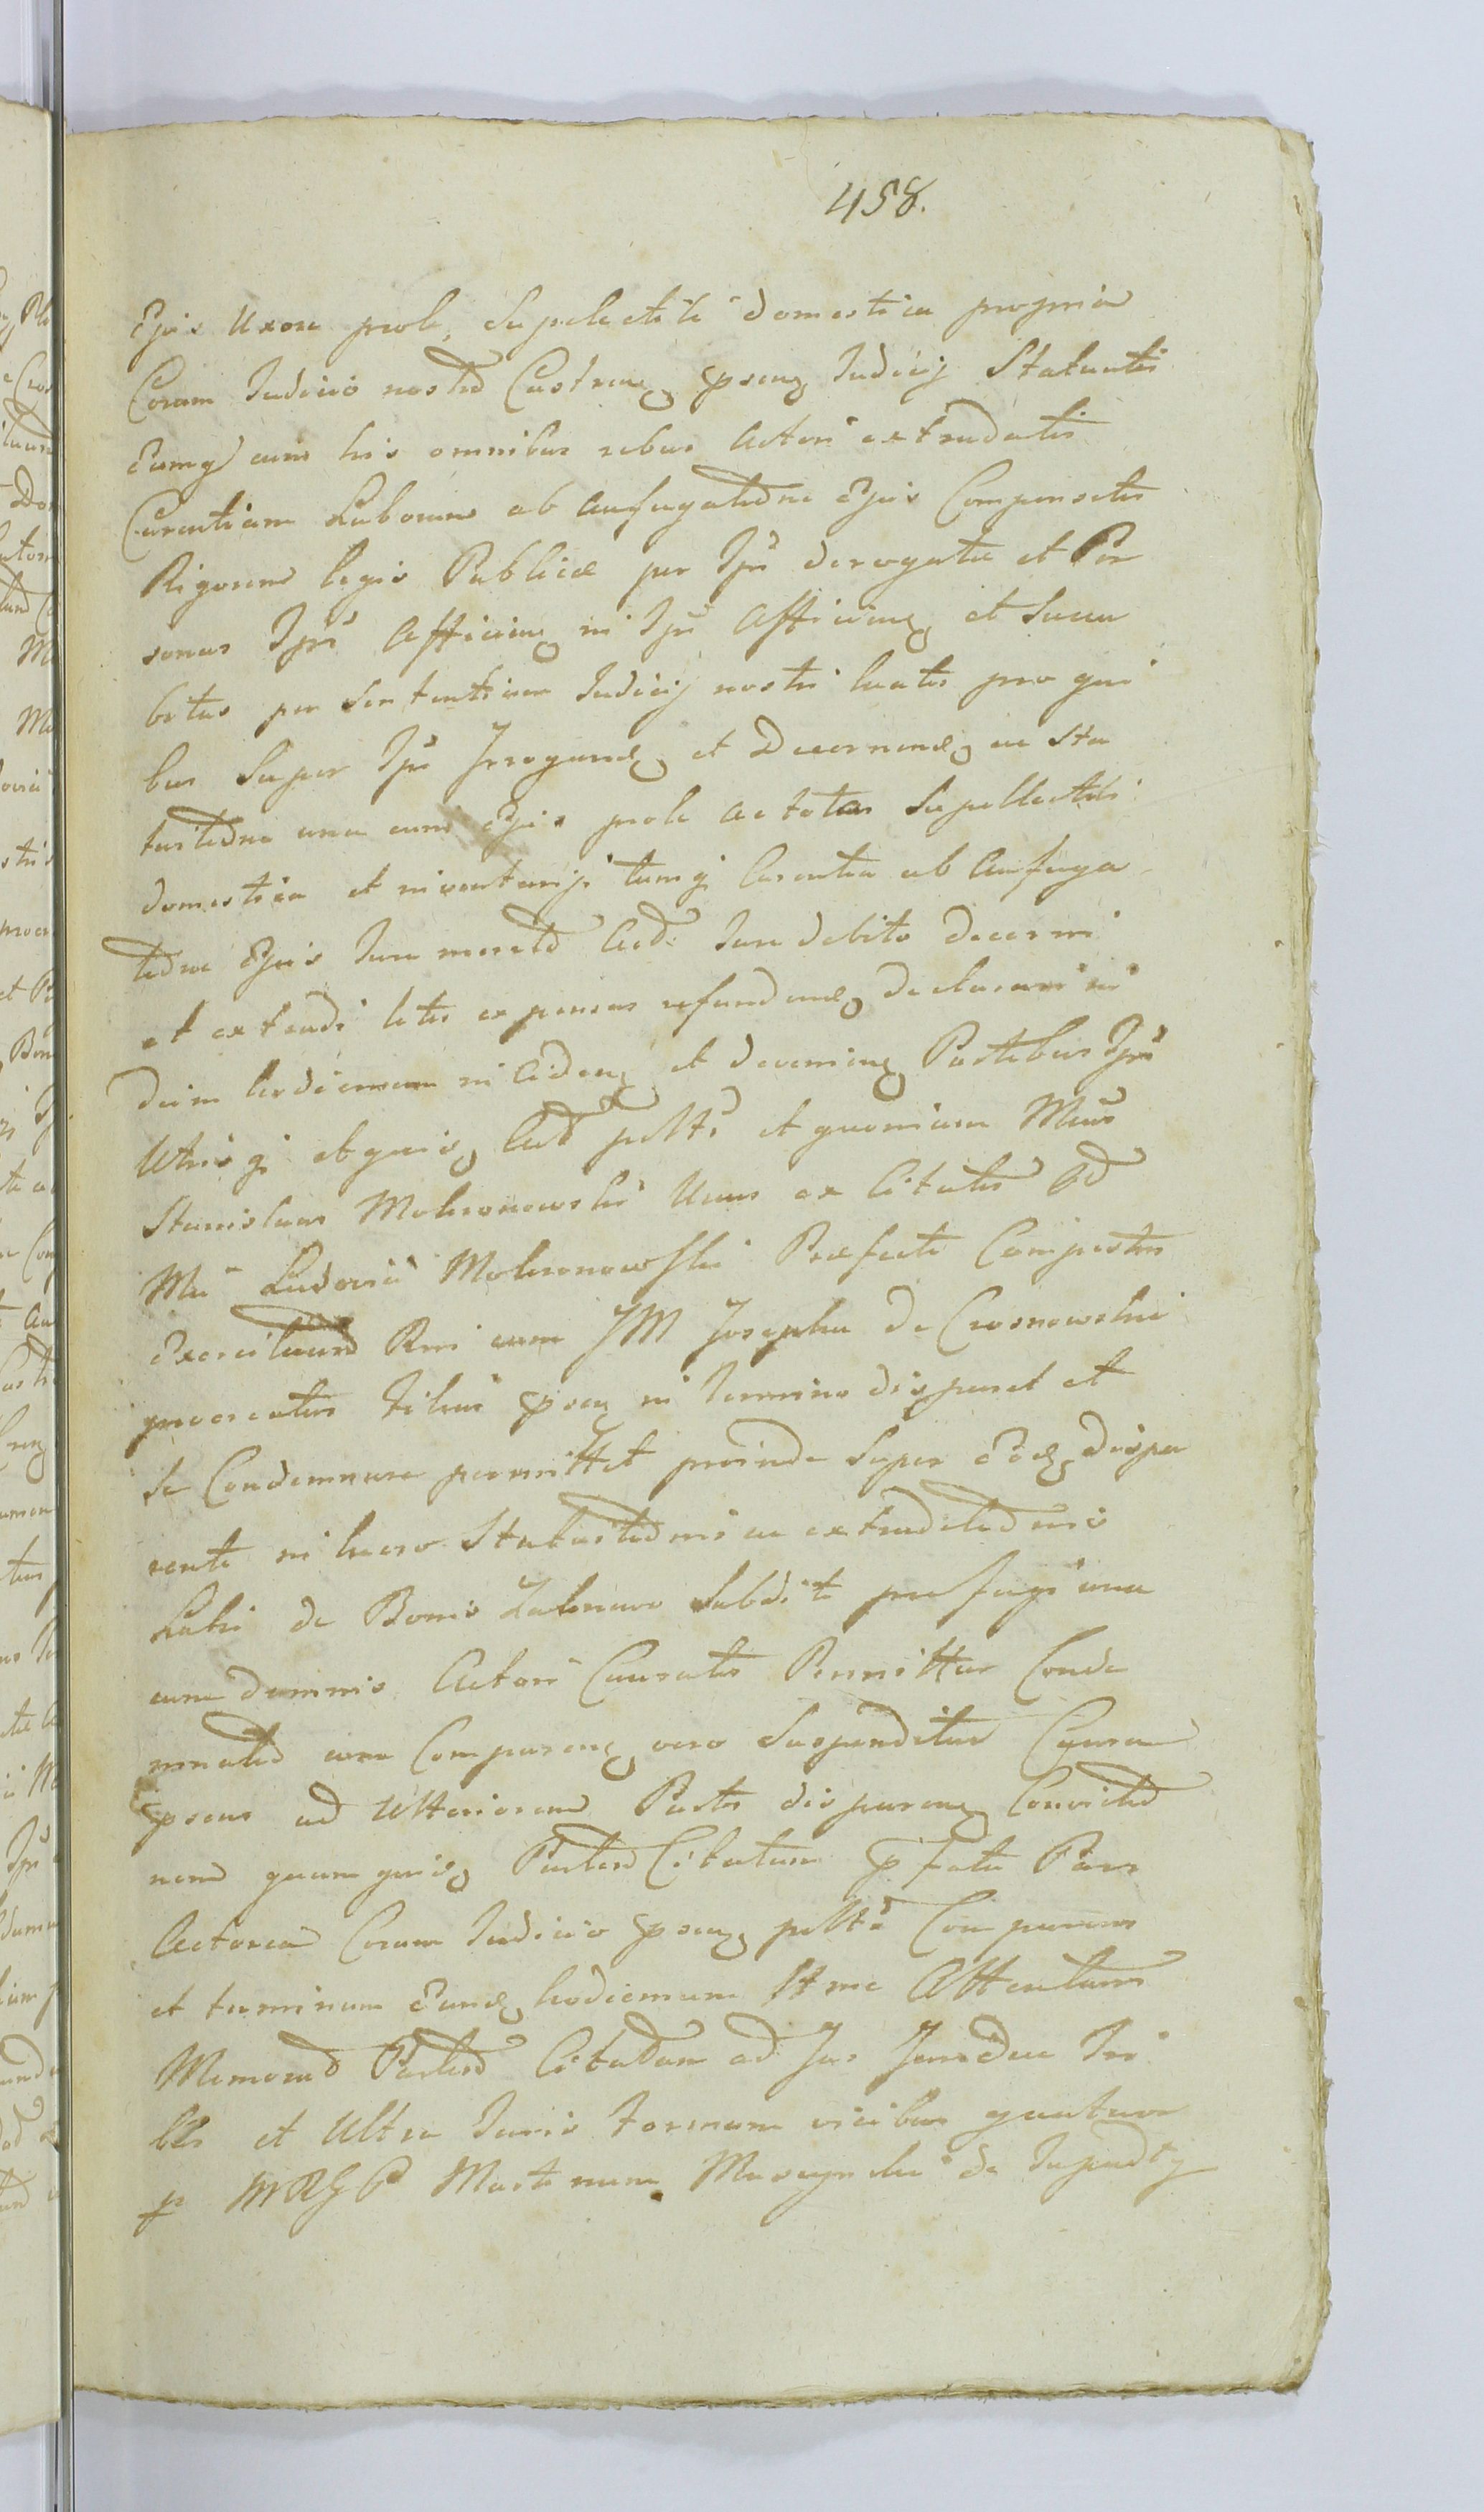 458.
Ejus Uxore prole, Supelectili domestica propria
Coram Judicio nostro Castren, psen Judicij Statuatis
Eumq cum his omnibus rebus Actori extradatis
Carentiam Laborum ab aufugatione Ejus Compensetis
Rigorem legis Publicæ per Ips derogatæ et Per
sonas Ips Afficien ni Ips Afficien, et Succu
bitus per Sententiam Judicij nostri luatis pro qui
bus Super Ips Irrogand, et Decernend, ac Sta
tuitione una cum Ejus prole ac tota Supellectili
domestica et inventarij tumq Carentia ab aufuga
tione Ejus Jura mereto Act: Jure debito decerni
et extradi litis expensas refundend, declarari in
diem hodiernum inciden et devenien Partibus Ips
Utrisq ab quis, Act psltr et quoniam Mcus
Stanislaus Mokronowski Unus ex Citatis
Mci Ludovici Mokronowski Præfecti Campestris
Exercituum Rni cum JM Josepha de Crosnowskie
procreatus filius psen in Termino disparet et
se Condemnare permittet proinde Super Eod, dispa
rente in lucro Statuitionis ac extraditionis
de Bonis Subditi profugi una
cum damnis Actori Causatis Permittitur Conde
mnatio cum Comparen, vero Suspenditur Causa
psens ad Ulteriorem Partis disparen, Convictio
nem quam quis, Partem Citatam pfata Pars
Actorea Coram Judicio psen, psltr Comparens
et terminum Eund, hodiernum Ittme Attentans
Memorad Partem Citatam ad Jus Jurisdice Tri
blr et Ultra Juris formam vicibus quatuor
p MRGP Martinum